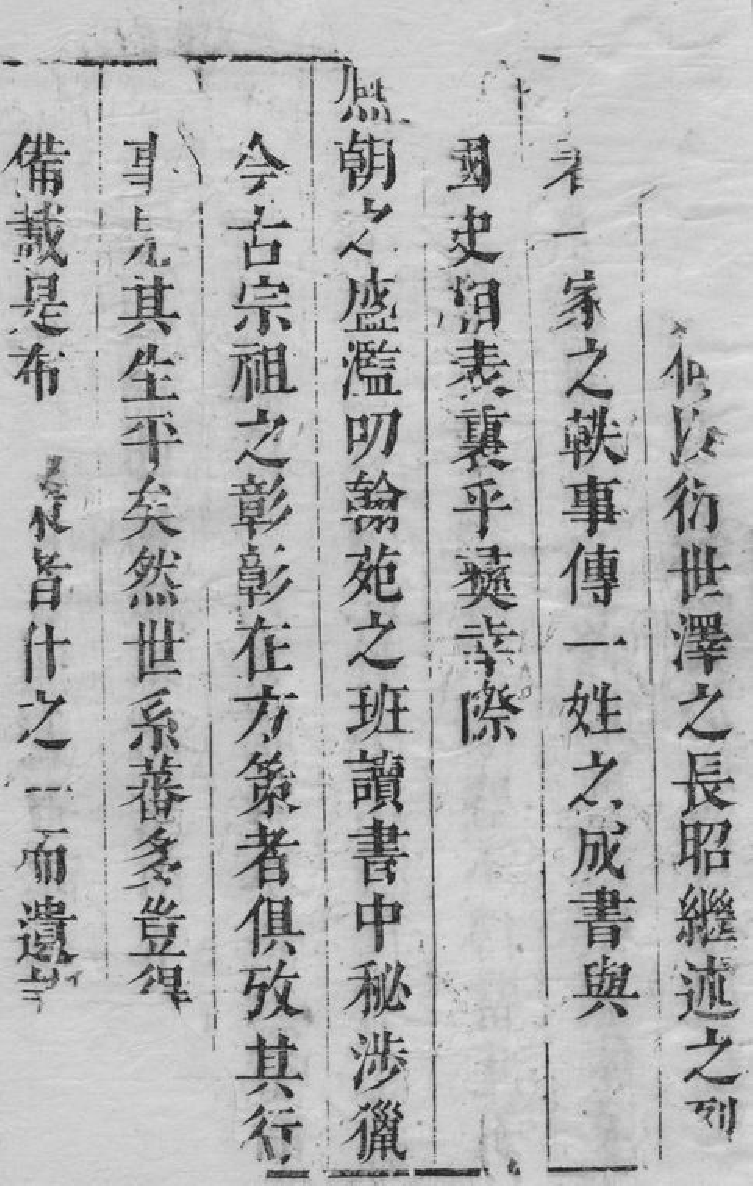 衍世澤之長昭繼述之列
一家之軼事傳一姓之成書與
國史相表裏乎彝幸際
熙朝之盛濫叨翰苑之班讀書中秘涉獵
今古宗祖之彰彰在方策者俱攷其行
事見其生平矣然世系蕃多豈得
備載是布者什之一而遺